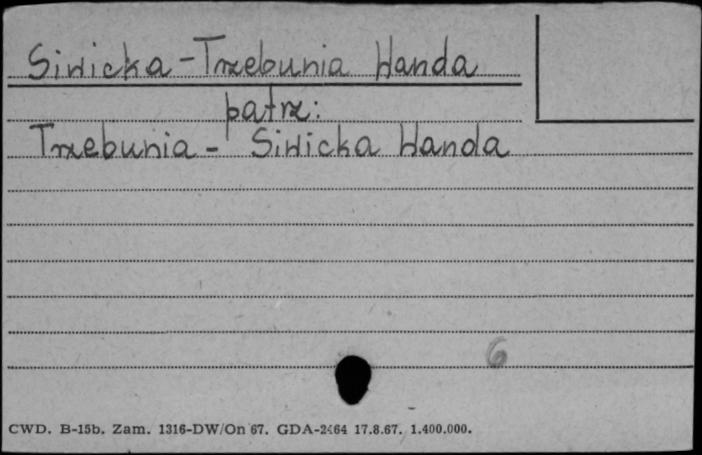 Siwicka-Trzebunia Wanda
patrz:
Trzebunia - Siwicka Wanda
6
CWD. B-15b. Zam. 1316-DW/On 67. GDA-2464 17.8.67. 1.400.000.